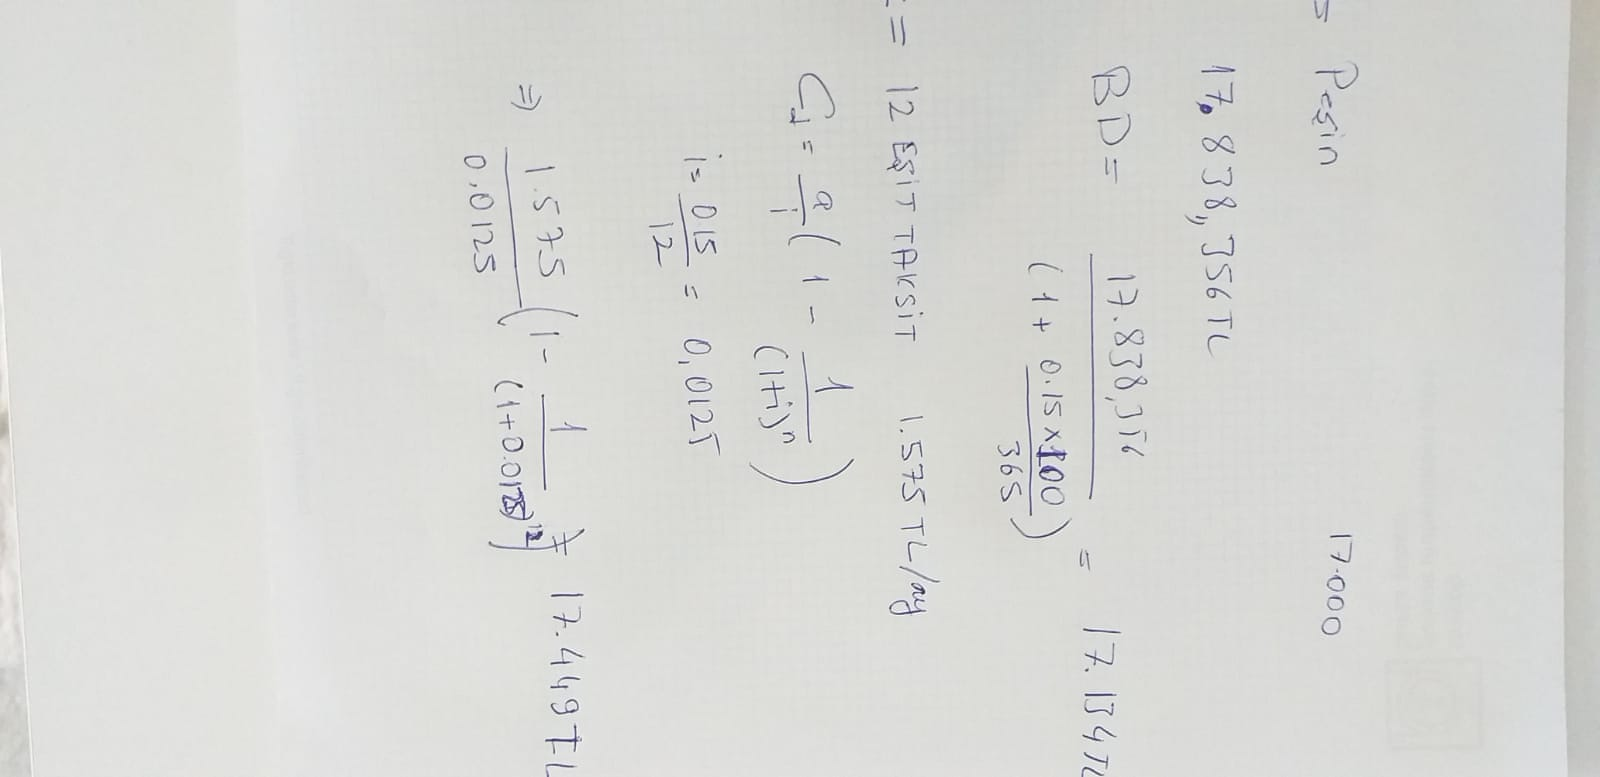 = Peşin 17.000
17.838,356 TL
BD = 17.838,356 / (1 + 0.15x100 / 365) = 17.134 TL
= 12 EŞİT TAKSİT 1.575 TL/ay
= a/i ( 1 - 1/(1+i)ⁿ )
i = 015/12 = 0,0125
⇒ 1.575/0.0125 ( 1 - 1/(1+0.0125)¹² ) = 17.449 TL